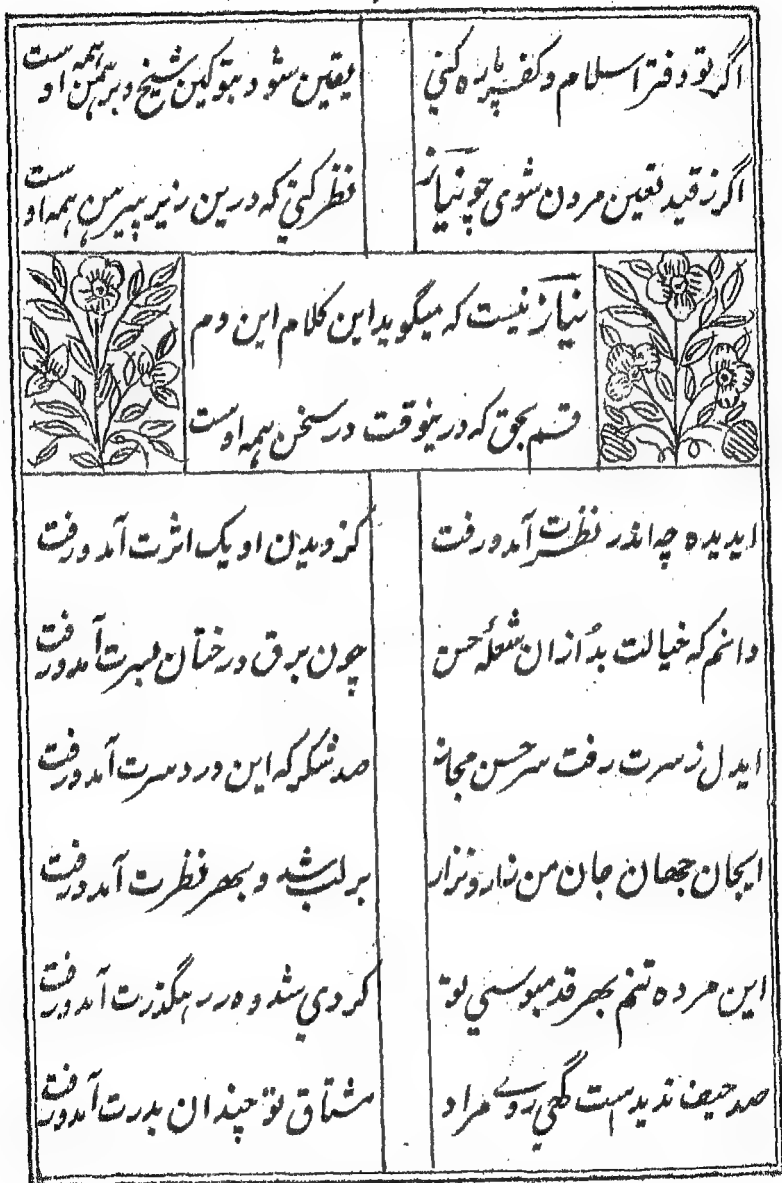 اگر تو دفتر اسلام و کفر پاره کنی
یقین شود بتو کین شیخ و برهمن همه اوست
اگر ز قید تعین مردن شوی چو نیاز
نظر کنی که درین زیر پیرهن همه اوست
نیاز نیست که میگوید این کلام این دم
قسم بحق که درینوقت در سخن همه اوست
ایدیده چه اندر نظرت آمد و رفت
کز دیدن او یک اثرت آمد و رفت
دانم که خیالت بد از ان شعلهٔ حسن
چون برق درخشان بسرت آمد و رفت
ایدل ز سرت رفت سر حسن مجاز
صد شکر که این درد سرت آمد و رفت
ایجان جهان جان من زار و نزار
بر لب شد و بهر نظرت آمد و رفت
این مرده تنم بهر قدمبوسی تو
کردی شد و در رهگذرت آمد و رفت
صد حیف ندیدست گهی روے مراد
مشتاق تو چندان بدرت آمد و رفت